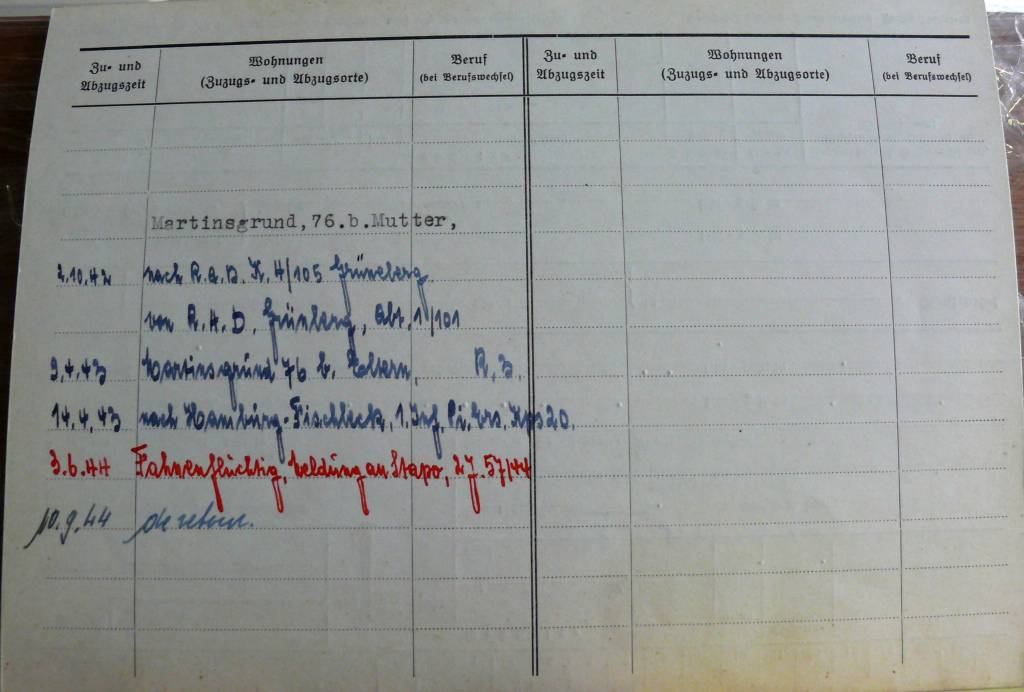 Zu- und Abzugszeit
Wohnungen (Zuzugs- und Abzugsorte)
Beruf (bei Berufswechsel)
Zu- und Abzugszeit
Wohnungen (Zuzugs- und Abzugsorte)
Beruf (bei Berufswechsel)
Martinsgrund, 76.b.Mutter,
2.10.42 nach R.A.D. K. 4/105 Grüneberg
von R.A.D. Grünberg, Abt. 1/101
9.4.43 Martinsgrund 76 b. Eltern, R.Z.
14.4.43 nach Hamburg-Fischbeck, 1. Inf. Pi. Ers. Kp 20.
3.6.44 Fahnenflüchtig, Meldung an Stapo, 2J.57/44
10.9.44